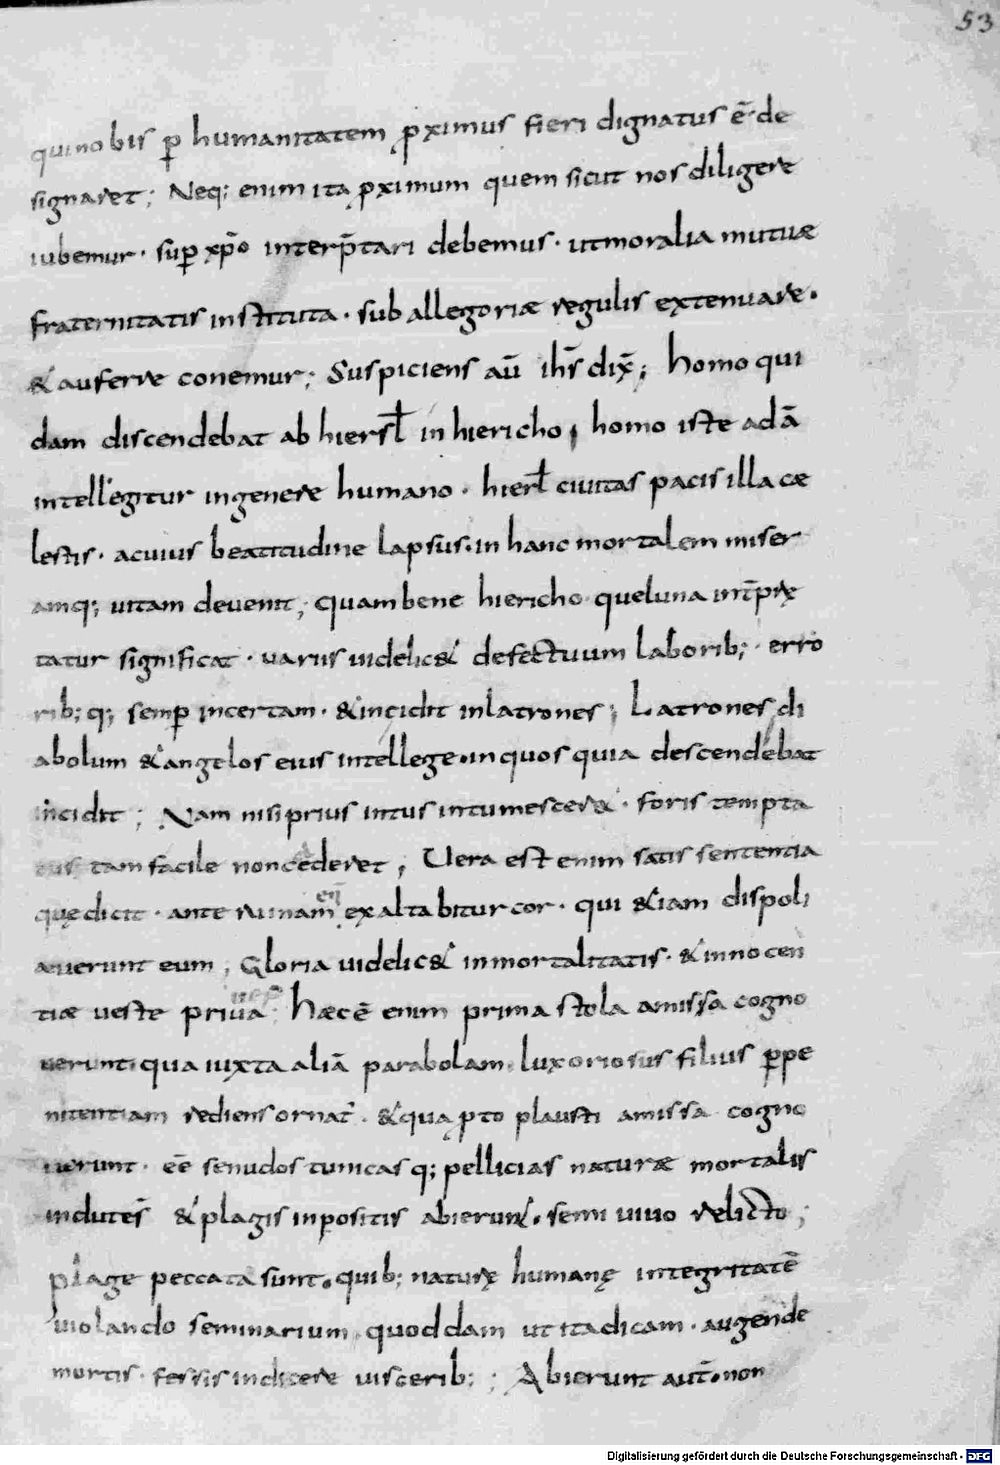 53
quinobis p̱ humanitatem ꝓximus fieri dignatus ē· de
signaret; Neq; enim ita ꝓximum quem sicut nos diligere
iubemur· suꝑ xp̄o interp̄tari debemus· utmoralia mutuæ
fraternitatis instituta· sub allegoriæ regulis extenuare·
& auferre conemur; Suspiciens aū ih̄s dix̄; homo qui
dam discendebat ab hiersł in hiericho; homo iste adā
intellegitur ingenere humano· hierł ciuitas pacis illa cæ
lestis· acuius beatitudine lapsus· in hanc mortalem miser
amq; uitam deuenit; quam bene hiericho queluna int̄prę
tatur significat· uarus uidelic& defectuum laborib;· erro
rib;q; semꝑ incertam· &incidit inlatrones; Latrones di
abolum & angelos eius intellege· inquos quia descendebat
incidit; Nam nisiprius intus intumescer&· foris tempta
tus tam facile noncederet; Uera est enim satis sententia
quędicit· ante ruinam exaltabitur cor· qui &iam dispoli
auerunt eum; Gloria uidelic& inmortalitatis· & innocen
tiæ ueste priua· Hæcē enim prima stola amissa cogno
uerunt· qua iuxta aliā parabolam· luxoriosus filius ꝑpe
nitentiam rediens ornat̄· & qua ꝓto plausti amissa cogno
uerunt· eē senudos tunicasq; pellicias naturæ mortalis
indutes̄ & plagis inpositis abierunt· semi uiuo relicto;
plage peccata sunt· quib; naturę humanę integritatē
uiolando seminarium· quoddam ut itadicam· augende
mortis· fessis indicere uiscerib;; Abierunt aut̄· non
Digitalisierung gefördert durch die Deutsche Forschungsgemeinschaft - DFG